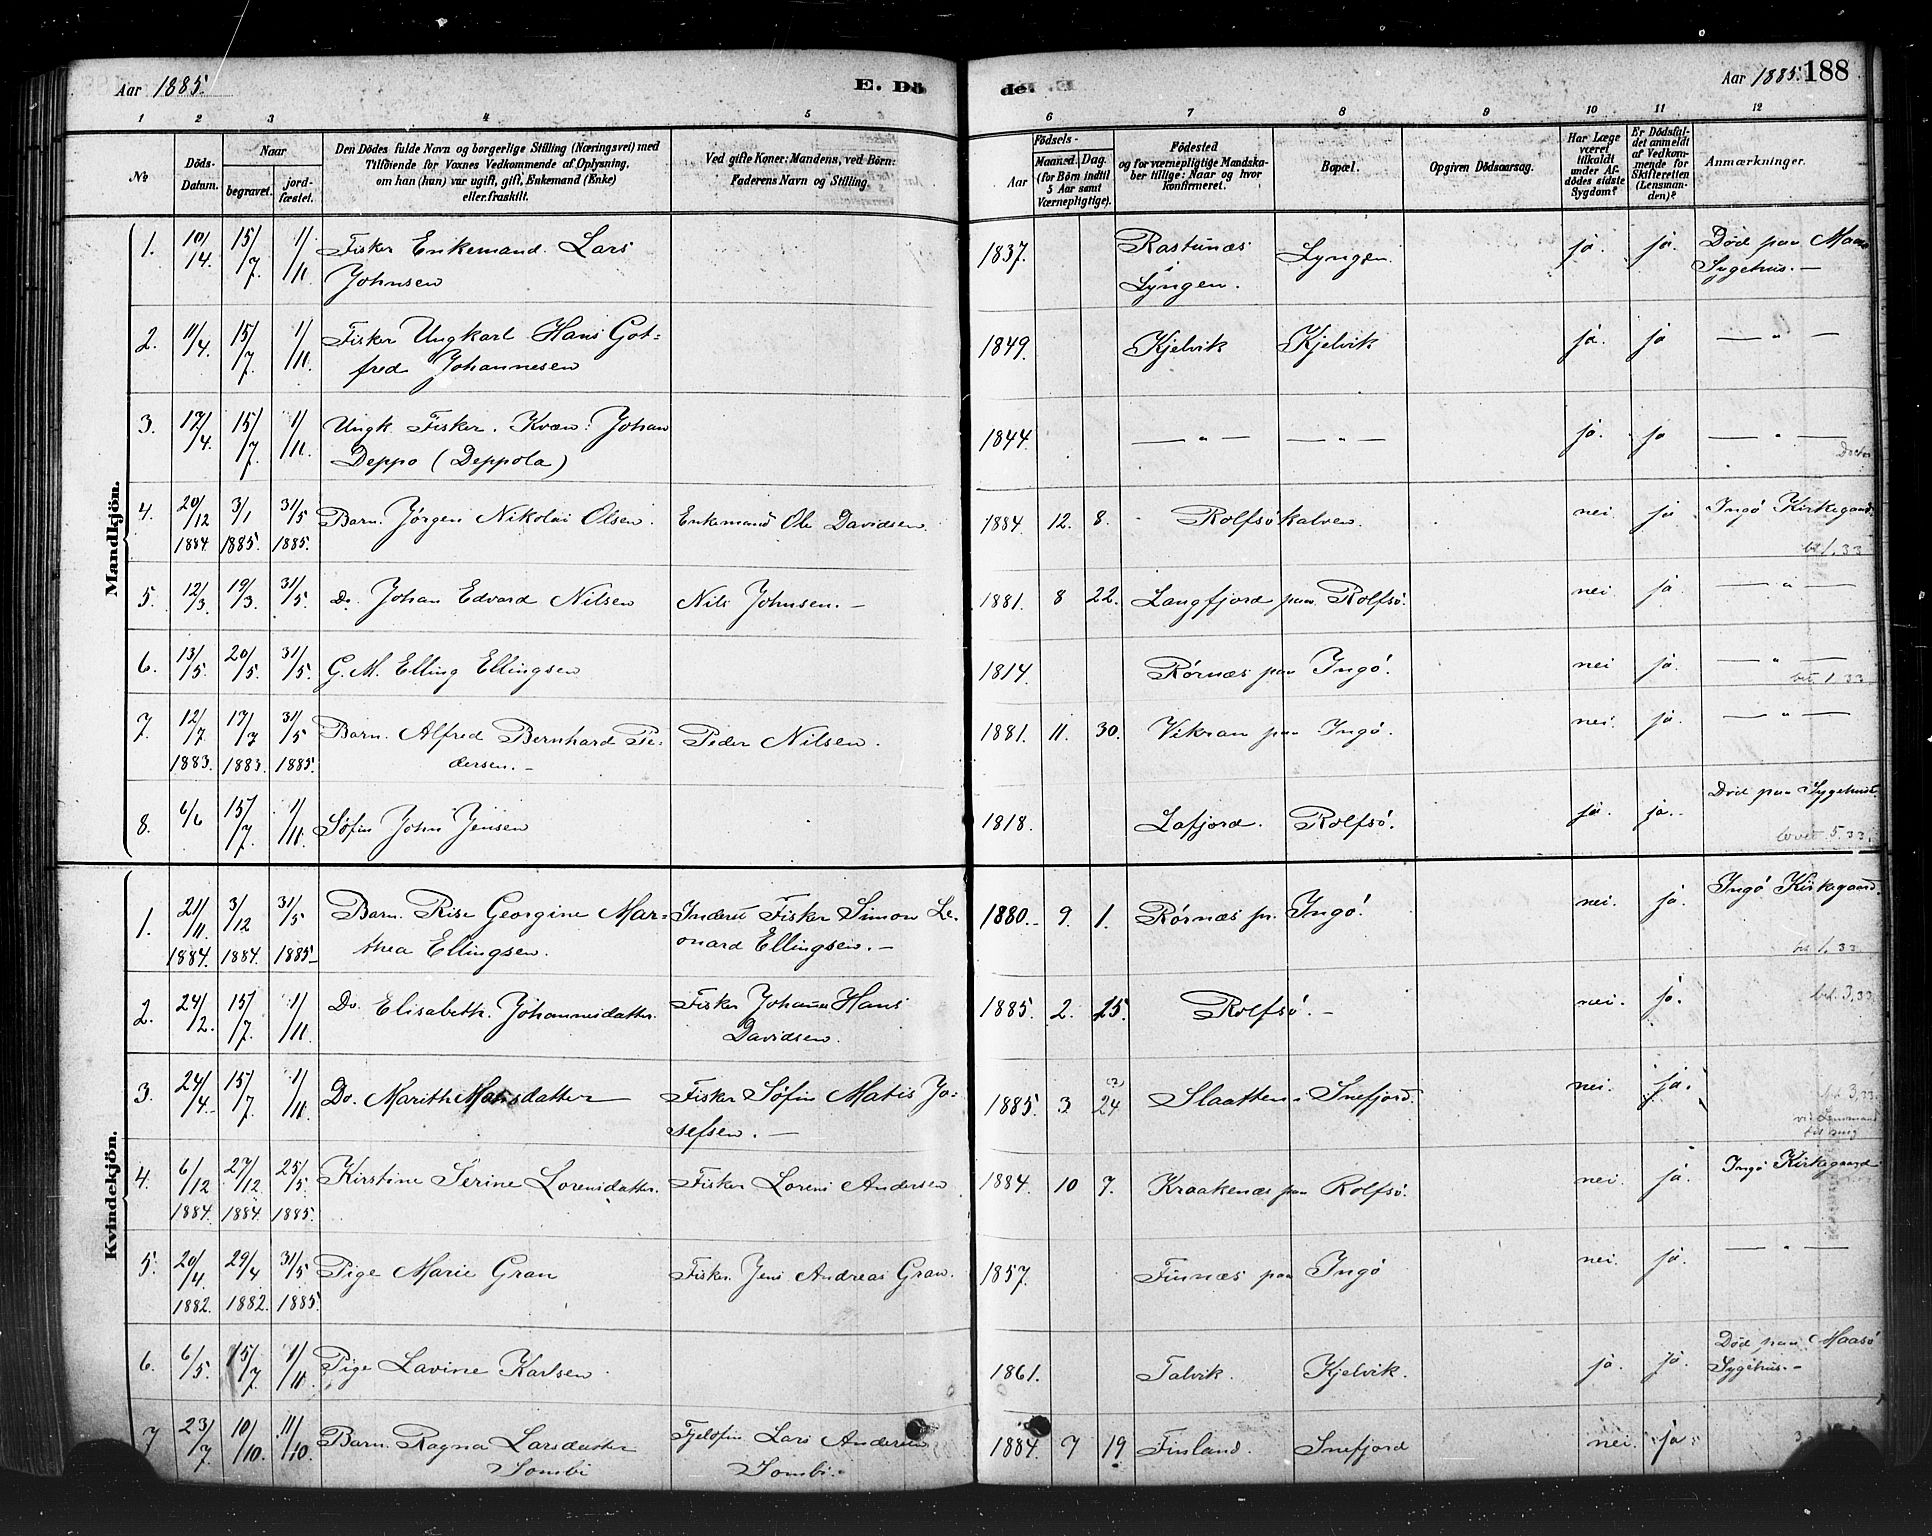 Aar 1885. E. Dö de. Aar 1885. 188
1 2 3 4 5 6 7 8 9 10 11 12
No.
Döds-Datum.
Naar
begravet.
jord-fæstet.
Den Dödes fulde Navn og borgerlige Stilling (Næringsvei) med
Tilföiende for Voxnes Vedkommende af Oplysning,
om han (hun) var ugift, gift, Enkemand (Enke)
eller fraskilt.
Ved gifte Koner: Mandens, ved Börn:
Faderens Navn og Stilling.
Födsels-
Aar
Maaned. Dag.
(for Börn indtil
5 Aar samt
Værnepligtige).
Födested
og for værnepligtige Mandska-
ber tillige: Naar og hvor
konfirmeret.
Bopæl.
Opgiven Dödsaarsag.
Har Læge
været
tilkaldt
under Af-
dödes sidste
Sygdom?
Er Dödsfal-
det anmeldt
af Vedkom-
mende for
Skifteretten
(Lensman-
den)?
Anmærkninger.
Mandkjön.
1. 10/14. 15/7 1/11 Fisker Enkemand. Lars 1837. Rastunæs Lyngen. ja. ja. Død paa
Johnsen Lyngen. Sygehus. —
2. 11/4. 15/7. 1/11. Fisker Ungkarl Hans Got- 1849. Kjelvik Kjelvik ja. ja — " —
fred Johannesen
3. 17/4. 15/7. 1/11. Ungk. Fisker. Kvæn. Johan 1844. — " — — " — ja. ja — " —
Deppo (Deppola)
4. 20/12 3/1 31/5 Barn. Jörgen Nikolai Olsen. Enkemand Ole Davidsen 1884 12. 8. Rolfsökalven. nei. ja Ingö Kirkegaard.
1884. 1885. 1885. 1.33
5. 12/3. 19/3. 31/5. Do. Johan Edvard Nilsen Nils Johnsen. — 1881. 8 22. Langfjord paa Rolfsö. nei. ja. — " —
6. 13/5 20/5. 31/5. G. M. Elling Ellingsen 1814. Rörnæs paa Ingö. nei ja. — " —
bet 1.33
7. 12/7. 17/7 31/5 Barn. Alfred Bernhard Pe- Peder Nilsen. 1881. 11. 30. Vikran paa Ingö. nei. ja. — " —
1883. 1883. 1885. dersen. —
8. 6/6 15/7. 1/11. Söfin John Jensen 1818. Lafjord. Rolfsö. ja. ja. Död paa Sygehuset.
5.33.
Kvindekjön.
1. 21/11. 3/12 31/5 Barn. Rise Georgine Mar- Inderst Fisker Simon Le- 1880. 9. 1. Rörnæs p. Ingö. nei. ja. Ingö Kirkegaard.
1884. 1884. 1885. thea Ellingsen. onard Ellingsen. — 1.33
2. 24/2. 15/7. 1/11 Do. Elisabeth. Johannesdatter. Fisker Johannes Hans 1885. 2. 15. Rolfsö. — nei. ja. bet. 3.33.
Davidsen.
3. 24/4. 15/7. 1/11 Do. Marith Matisdatter Fisker Söfin Matis Jo- 1885. 3. 24 Slaatten Snefjord. nei. ja. 3,33.
sefsen. —
4. 6/12 27/12 25/5. Kirstine Serine Lorensdatter. Fisker Lorens Andersen 1884. 10 7. Kraakenæs paa Rolfsö. nei. ja. Ingö Kirkegaard
1884. 1884. 1885.
5. 20/4. 29/4 31/5 Pige Marie Gran Fisker Jens Andreas Gran. 1857. Finnæs paa Ingö nei. ja. — " —
1882. 1882. 1885.
6. 6/5. 15/7 1/11. Pige Lavine Karlsen. 1861. Talvik. Kjelvik. ja. ja. Död paa Maasö
Sygehus. —
7 23/7 10/10. 11/10 Barn. Ragna Larsdatter Fjelöfin Lars Andersen 1884 7 19 Finland. Snefjord nei. ja.
Sombi Sombi.